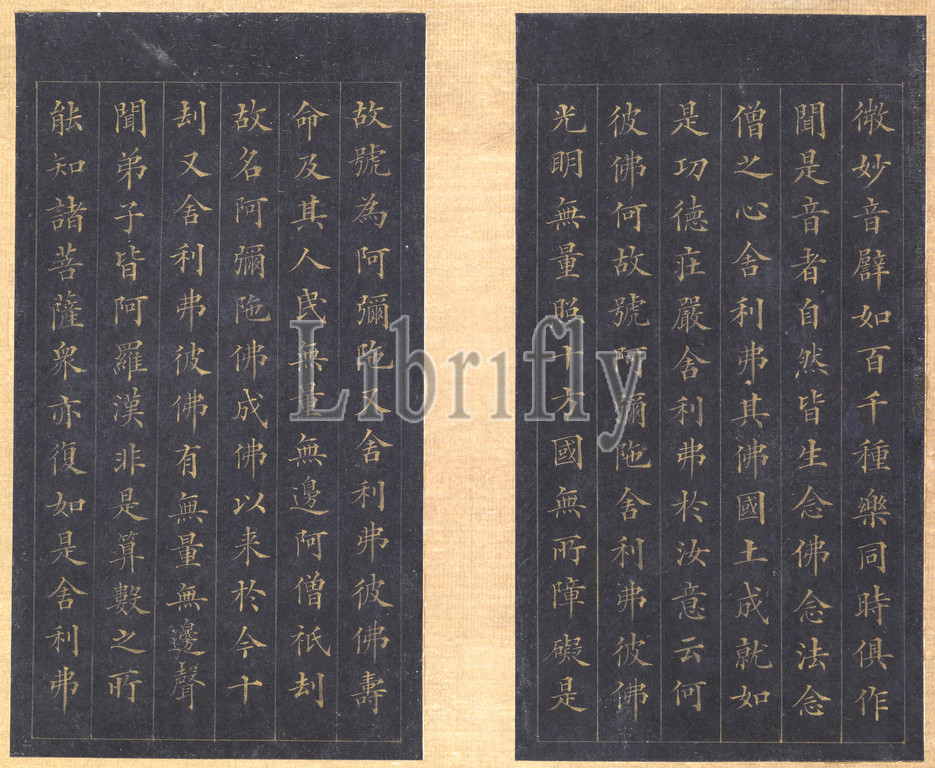 微妙音譬如百千種樂同時俱作
聞是音者自然皆生念佛念法念
僧之心舍利弗其佛國土成就如
是功德莊嚴舍利弗於汝意云何
彼佛何故號阿彌陁舍利弗彼佛
光明無量照十方國無所障礙是
故號為阿彌陁又舍利弗彼佛壽
命及其人民無量無邊阿僧祇刦
故名阿彌陁佛成佛以来於今十
刦又舍利弗彼佛有無量無邊聲
聞弟子皆阿羅漢非是算數之所
能知諸菩薩衆亦復如是舍利弗
Librifly